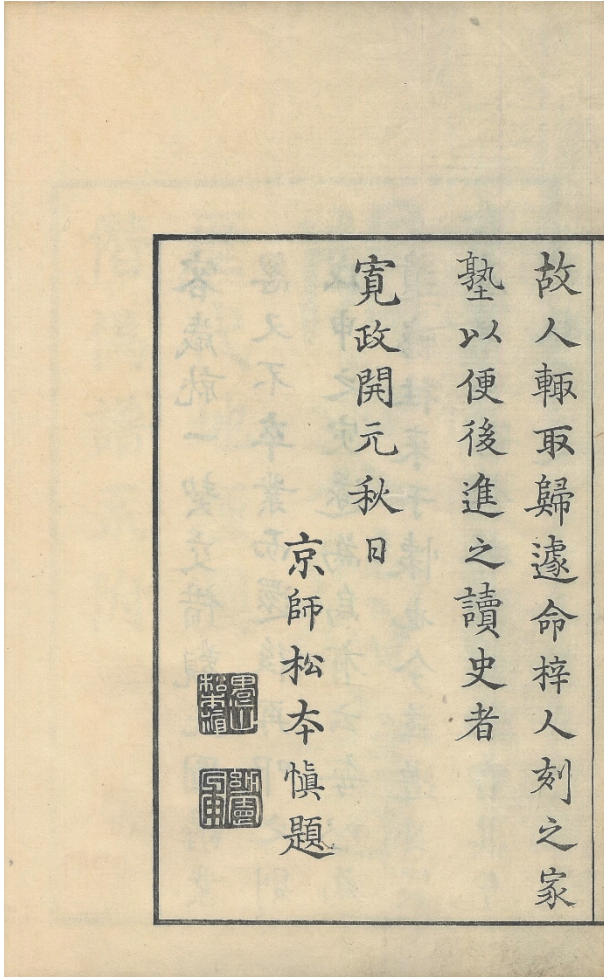 故人輙取歸遽命梓人刻之家
塾以便後進之讀史者
寛政開元秋日
京師松本愼題